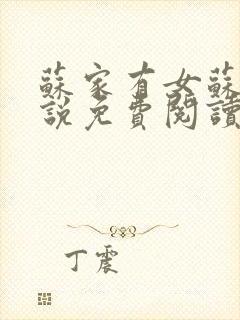 蘇家有女蘇
說免費閱讀
丁震